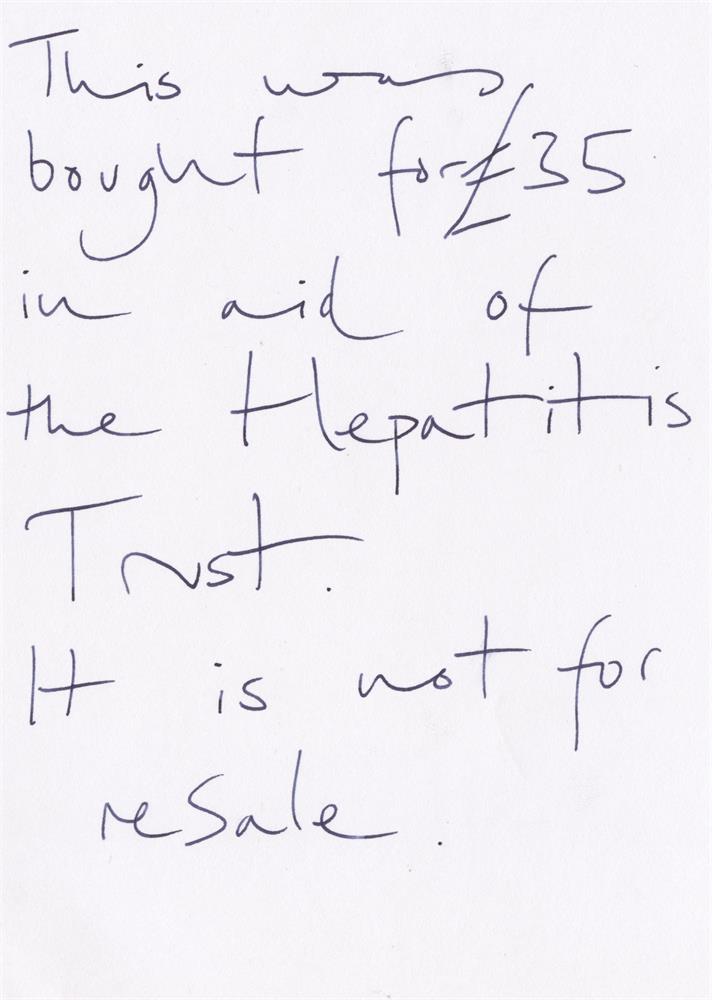 This was
bought for £35
in aid of
the Hepatitis
Trust.
It is not for
resale.